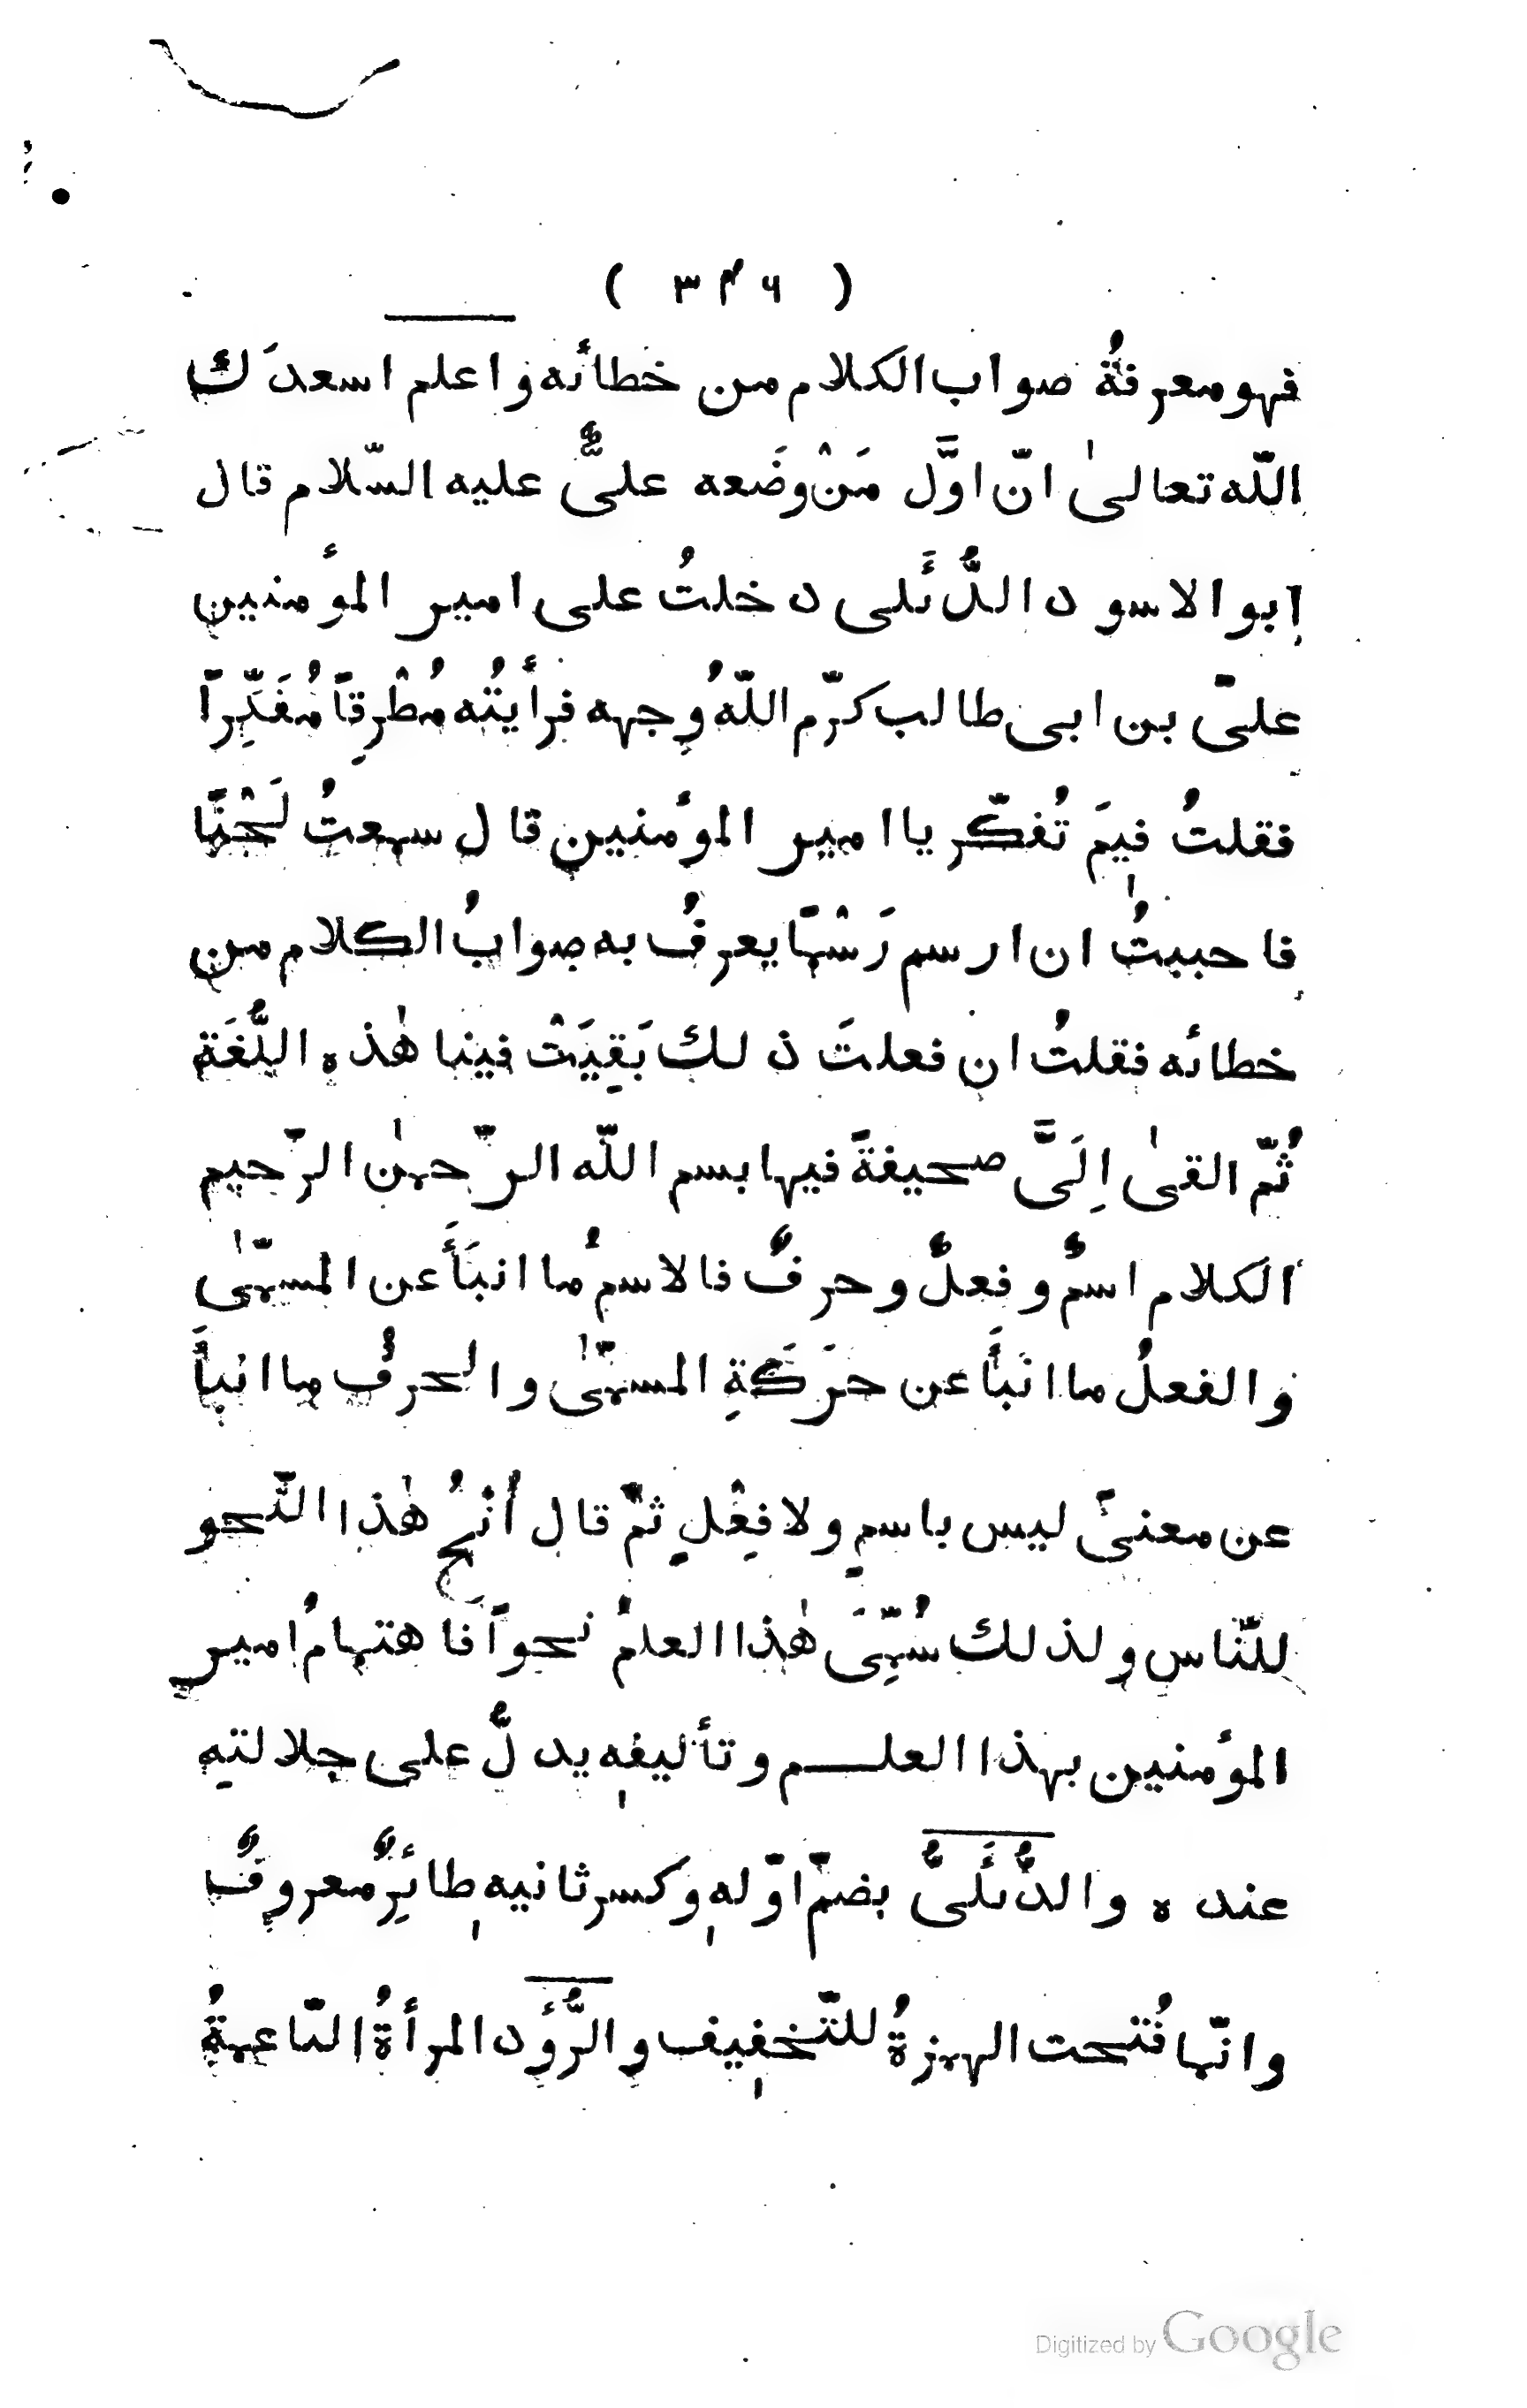 ( ٣٤٦ )
فهو معرفةُ صواب الكلام من خطائه واعلم اسعدَك
اللّه تعالىٰ انّ اوَّل مَنْ وضَعه علىٌّ عليه السّلام قال
ابو الاسود الدُّئَلى دخلتُ على امير المؤمنين
علىّ بن ابى طالب كرّم اللّهُ وجهه فرأيتُه مُطْرِقاً مُفَكِّراً
فقلتُ فيمَ تُفكّر يا امير المؤمنين قال سمعتُ لَحْنًا
فاحببتُ ان ارسم رَسْمًا يعرفُ به صوابُ الكلام من
خطائه فقلتُ ان فعلتَ ذلك بَقِيَتْ فينا هٰذه اللُّغَة
ثُمّ القىٰ اِلَىَّ صحيفةً فيها بسم اللّه الرّحمٰن الرّحيم
الكلام اسمٌ وفعلٌ وحرفٌ فالاسمُ ما انبَأَ عن المسمّىٰ
والفعلُ ما انَبأَ عن حرَكَةِ المسمّىٰ والحرفُ ما انبأَ
عن معنىً ليس باسمٍ ولا فِعْلٍ ثمّ قال أُنْحُ هٰذا النّحو
للنّاس ولذلك سُمِّىَ هٰذا العلمُ نحواً فَاهتمامُ امير
المؤمنين بهذا العلم وتأليفهٖ يدلُّ على جلالتهِ
عنده والدُّئَلىُّ بضمّ اوّلهٖ وكسر ثانيهٖ طائِرٌ معروفٌ
وانّما فُتحت الهمزةُ للتّخفيف والرُّؤَد المرأةُ النّاعمةُ
Digitized by Google